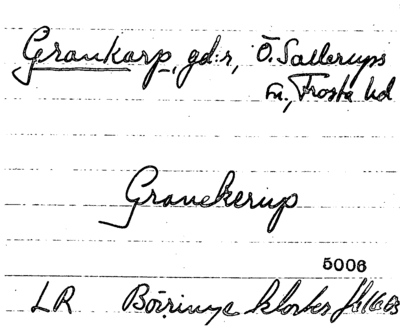 Grankarp, gd:r, Ö. Sallerups
sn., Frosta hd
Granekerup
5006
LR Börringe kloster